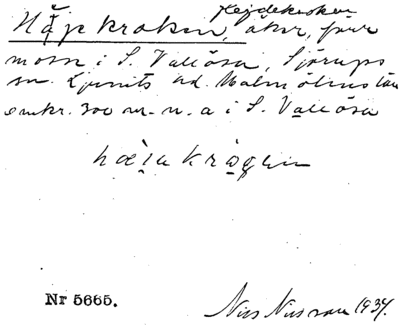 Håjekroken, åker, förr
mosse i S. Vallösa, Sjörups
sn. Ljunits hd. Malmöhus län
omkr. 300 m. n. a i S. Vallösa
Nr 5665.
Nils Nilsson 1934.